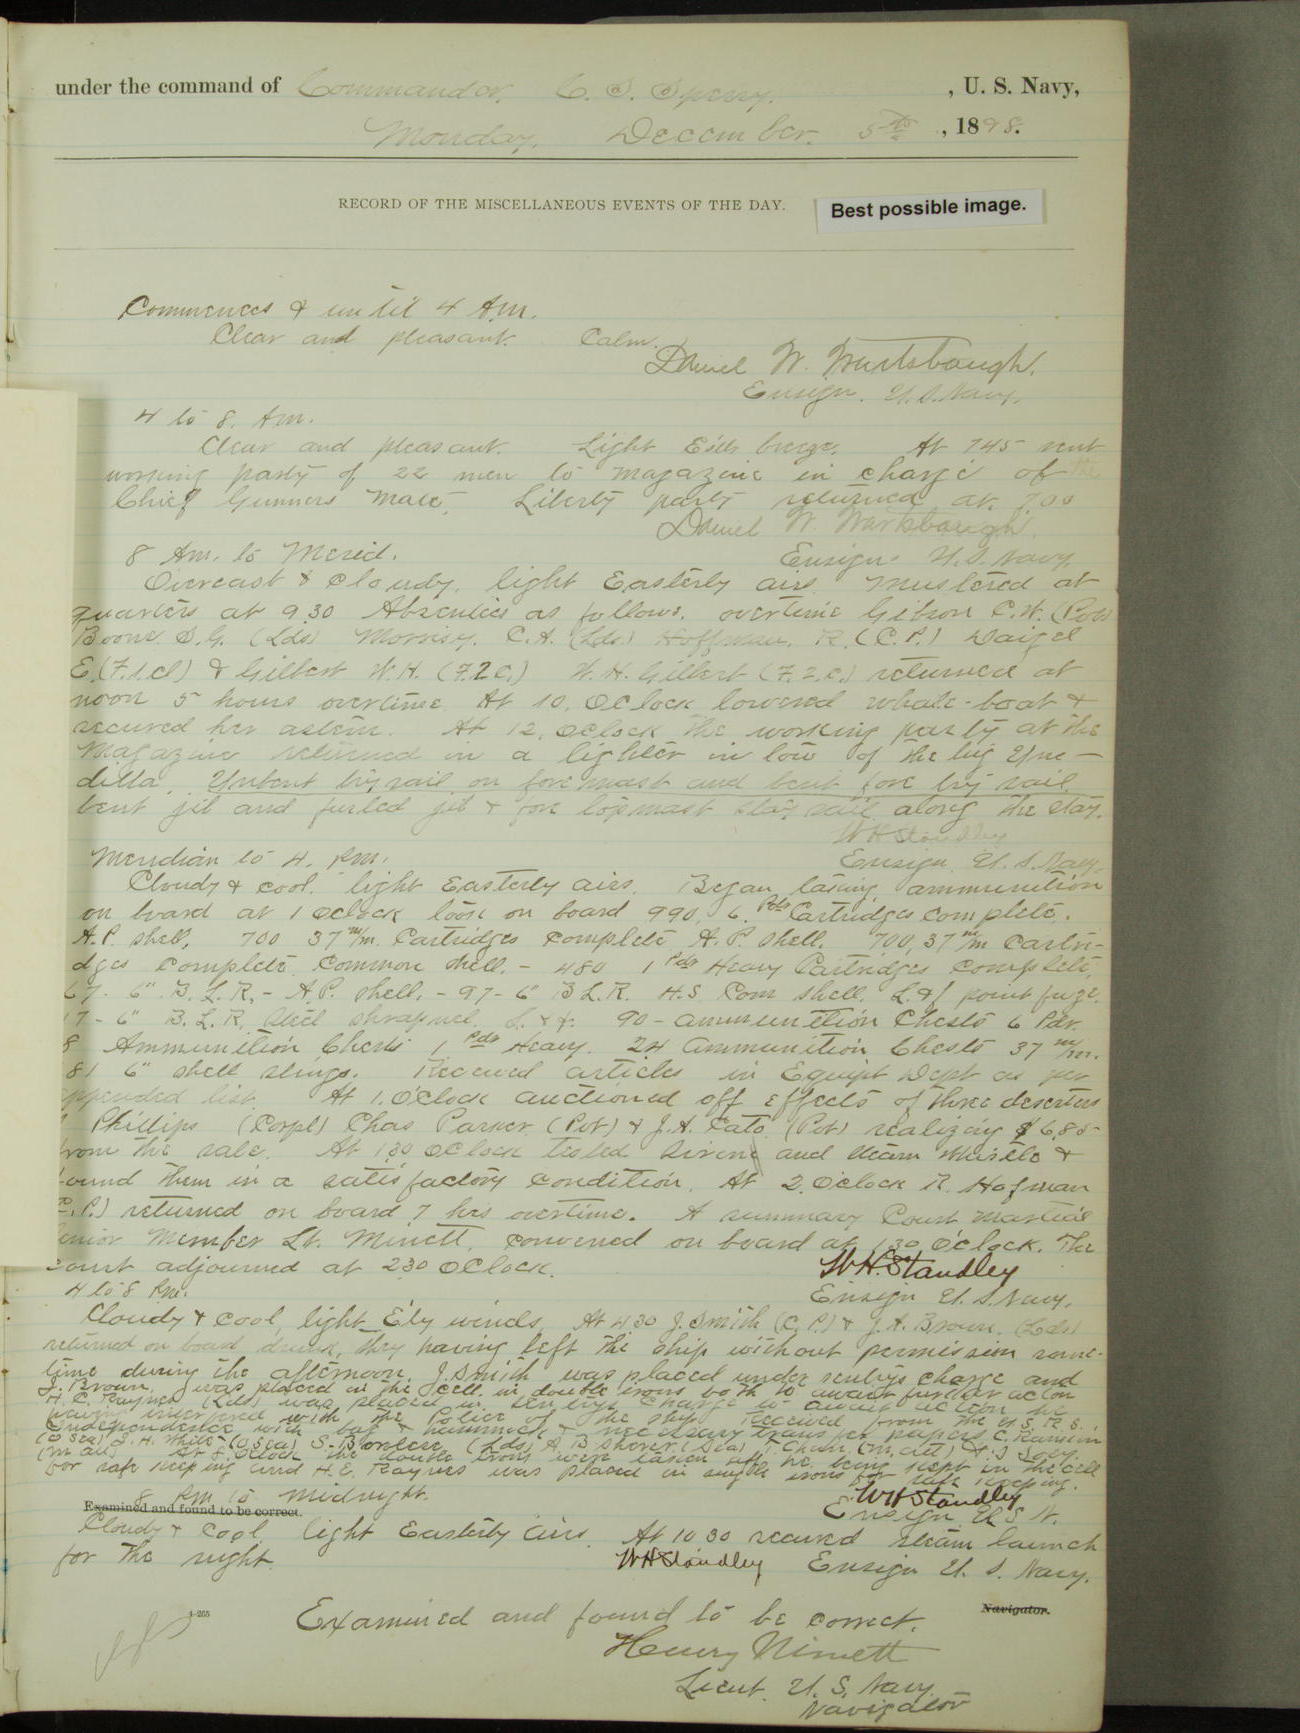 under the command of Commander, C. S. Sperry. , U. S. Navy,
Monday, December. 5th , 1898.
RECORD OF THE MISCELLANEOUS EVENTS OF THE DAY.
Best possible image.
Commences & until 4 A.m.
Clear and pleasant. Calm.
Daniel W. Wurtsbaugh.
Ensign. U.S. Navy.
4 to 8. A.m.
Clear and pleasant. Light E'ily breeze. At 745 sent
working party of 22 men to magazine in charge of the
Chief Gunners Mate. Liberty party returned at 7.00
Daniel W. Wurtsbaugh.
Ensign. U.S. Navy.
8 Am. to Merid.
Overcast & cloudy. light Easterly airs. Mustered at
quarters at 9.30 Absentees as follows. overtime Gibson C.W. (Pvt)
Boone S.G. (Lds) Morrisy. C.A. (Lds) Hoffman. R. (C.P.) Daigel
E. (F.1.cl) & Gilbert W.H. (F.2.C.) W.H. Gilbert (F.2.c.) returned at
noon 5 hours overtime. At 10. OClock lowered whale-boat &
secured her astern. At 12. Oclock the working party at the
Magazine returned in a lighter in tow of the tug Una-
dilla. Unbent try sail on foremast and bent fore try sail
bent jib and furled jib & fore topmast stay sail along the stay.
WH Standley
Ensign U.S. Navy.
Meridian to 4. Pm.
Cloudy & cool. light Easterly airs. Began taking ammunition
on board at 1 Oclock took on board 990, 6. Pdr Cartridges complete.
A.P. shell, 700 37 m/m. Cartridges complete A.P. shell. 700, 37 m/m Cartri-
dges complete common shell. - 480 1 Pdr Heavy Cartridges complete,
67- 6" B.L.R,- A.P. shell, - 97- 6" B.L.R. H.S. Com shell. L.&f point fuze.
17 - 6" B.L.R. steel shrapnel L. & f. 90 - ammunition Chests 6 Pdr.
8 Ammunition Chests 1 Pdr Heavy. 24 ammunition Chests 37 m/m.
81 6" shell slings. Received articles in Equipt Dept as per
appended list. At 1. O'Clock auctioned off effects of three deserters
Phillips (Corpl) Chas Parker (Pvt) & J.A. Cato (Pvt) realizing $6.85
from the sale. At 130 OClock tested siren and steam whistle &
found them in a satisfactory condition. At 2. Oclock R. Hofman
C.P.) returned on board 7 hrs overtime. A summary Court Martial
Senior Member Lt. Minett. convened on board at 1.30 O'clock. The
court adjourned at 230 OClock.
W.H. Standley
Ensign U.S. Navy.
4 to 8 Pm.
Cloudy & cool, light E'ly winds. At 430 J. Smith (C.P.) & J.H. Brown. (Lds)
returned on board drunk, they having left the ship without permission some-
time during the afternoon. J. Smith was placed under sentrys charge and
J. Brown. was placed in the cell in double irons both to await further action
H.E. Raynes (Lds) was placed in sentrys charge to await action he
having interfered with the Police of the ship. Received from the U.S.R.S.
Independence with bag & hammock & necessary transfer papers C.
(O Sea) J.H. White (O Sea) S. (Lds) A.B. (Sea) T. Chun (M. att) &
(M att) At 8. OClock the double irons were taken off he being kept in the cell
for safe keeping and H.E. Raynes was placed in single irons for safe keeping.
W H Standley
Ensign U.S.N.
8 Pm to Midnight.
Examined and found to be correct.
Cloudy & cool, light Easterly airs. At 10 30 secured steam launch
for the night. WH Standley Ensign U.S. Navy.
Examined and found to be correct.
Navigator.
Henry Minett
Lieut. U.S. Navy.
Navigator